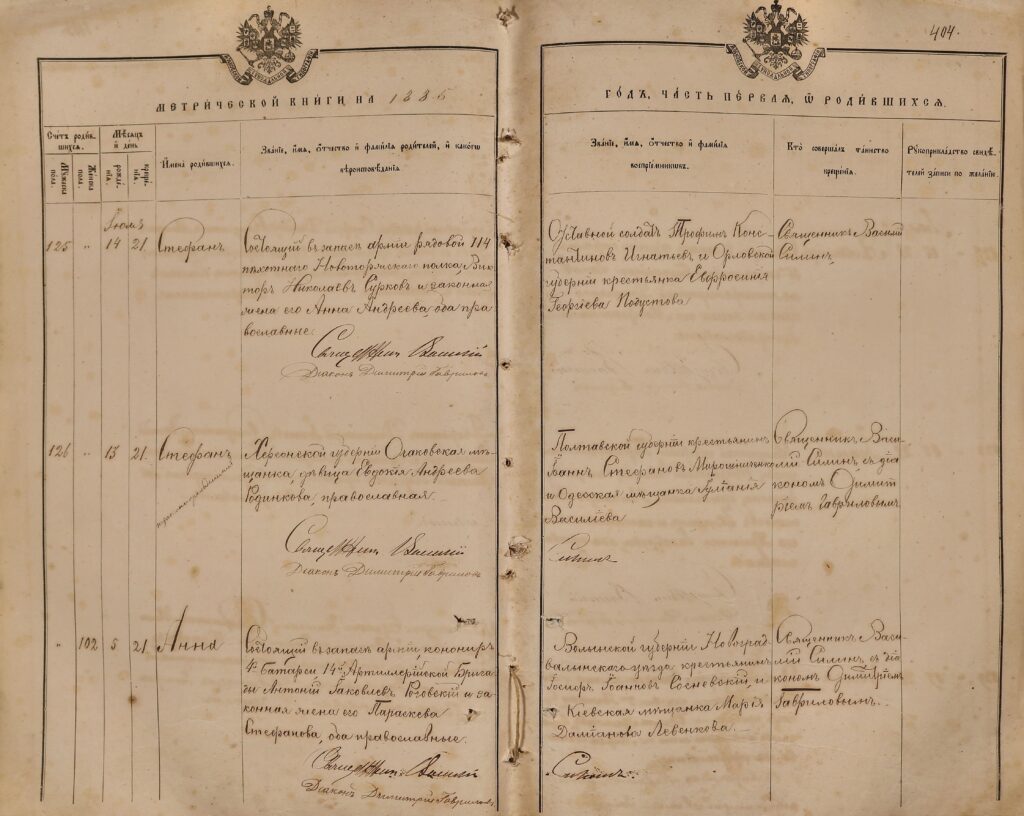 404.
МЕТРИЧЕСКОЙ КНИГИ НА 1885
ГОДЪ, ЧАСТЬ ПЕРВАЯ, Ѡ РОДИВШИХСЯ.
Счетъ родившихся.
Мужеска пола.
Женска пола.
Мѣсяцъ и день
рожденія.
крещенія.
Имена родившихся.
Званіе, имя, отчество и фамилія родителей, и какого
вѣроисповѣданія.
Званіе, имя, отчество и фамилія
воспріемниковъ.
Кто совершалъ таинство
крещенія.
Рукоприкладство свидѣ-
телей записи по желанію.
125 „ 14 21 Стефанъ
Состоящій въ запасѣ арміи рядовой 114
пѣхотнаго Новоторжскаго полка, Вик-
торъ Николаевъ Сурковъ и законная
жена его Анна Андреева, оба пра
вославные.
Священникъ Василій
Діаконъ Димитрій Гавриловъ
Отставной солдатъ Трофимъ Конс-
тантиновъ Игнатьевъ и Орловской
губерніи крестьянка Евфросинія
Георгіева Подустова
Священникъ Василій
Силинъ
126 „ 13 21 Стефанъ
Херсонской губерніи Очаковская мѣ-
щанка, дѣвица Евдокія Андреева
Родинкова, православная.
Священникъ Василій
Діаконъ Димитрій Гавриловъ
Полтавской губерніи крестьянинъ
Іоаннъ Стефановъ Мирошниченко
и Одесская мѣщанка
Василіева
Силинъ
Священникъ Васи-
лій Силинъ съ діа
кономъ Димит
ріемъ Гавриловымъ
„ 102 5 21 Анна
Состоящій въ запасѣ арміи канониръ
4й батареи, 14й Артиллерійской Брига-
ды Антоній Іаковлевъ Роговскій и за-
конная жена его Параскева
Стефанова, оба православные.
Священникъ Василій
Діаконъ Димитрій Гавриловъ
Волынской губерніи Новоград-
валынскаго уѣзда крестьянинъ
Іоановъ Сосневскій, и
Кіевская мѣщанка Марія
Даміанова Левенкова.
Силинъ
Священникъ Васи-
лій Силинъ съ діа
кономъ Димитріемъ
Гавриловымъ.